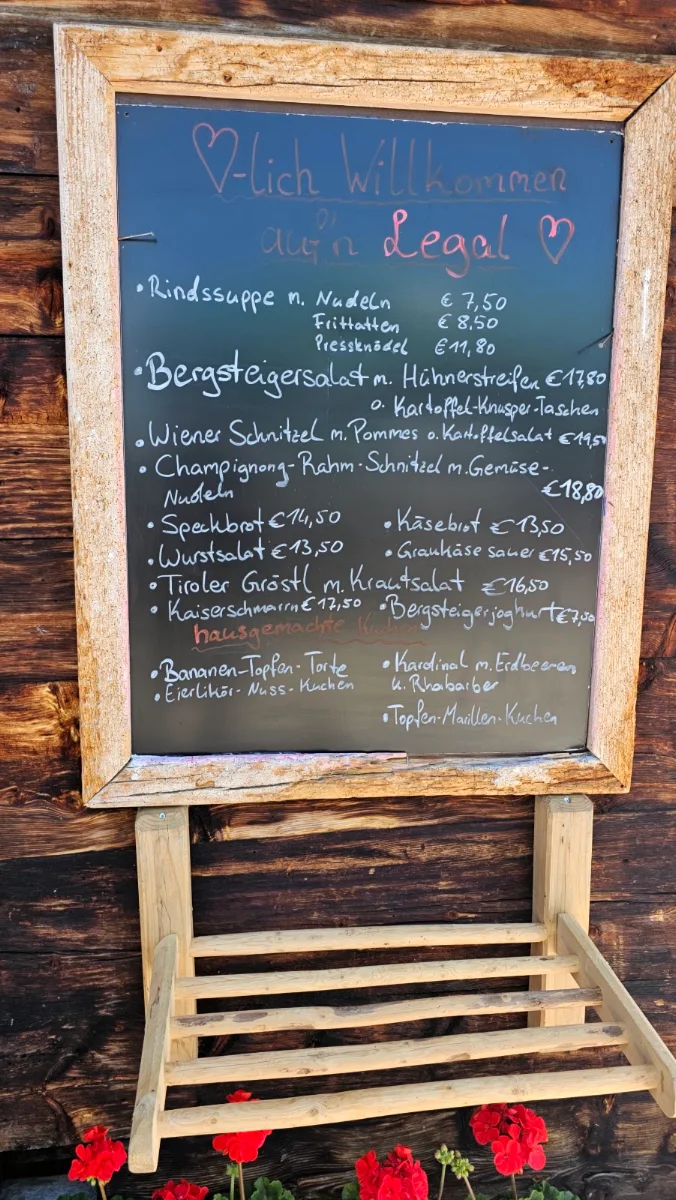 ♡-lich Willkommen
auf'n Legal ♡
• Rindssuppe m. Nudeln € 7,50
Frittatten € 8,50
Pressknödel € 11,80
• Bergsteigersalat m. Hühnerstreifen € 17,80
o. Kartoffel-Knusper-Taschen
• Wiener Schnitzel m. Pommes o. Kartoffelsalat € 19,50
• Champignong-Rahm-Schnitzel m. Gemüse-
Nudeln € 18,80
• Speckbrot € 14,50 • Käsebrot € 13,50
• Wurstsalat € 13,50 • Graukäse sauer € 15,50
• Tiroler Gröstl m. Krautsalat € 16,50
• Kaiserschmarrn € 17,50 • Bergsteigerjoghurt € 7,50
hausgemachte Kuchen
• Bananen-Topfen-Torte
• Eierlikör-Nuss-Kuchen
• Kardinal m. Erdbeeren
u. Rhabarber
• Topfen-Marillen-Kuchen